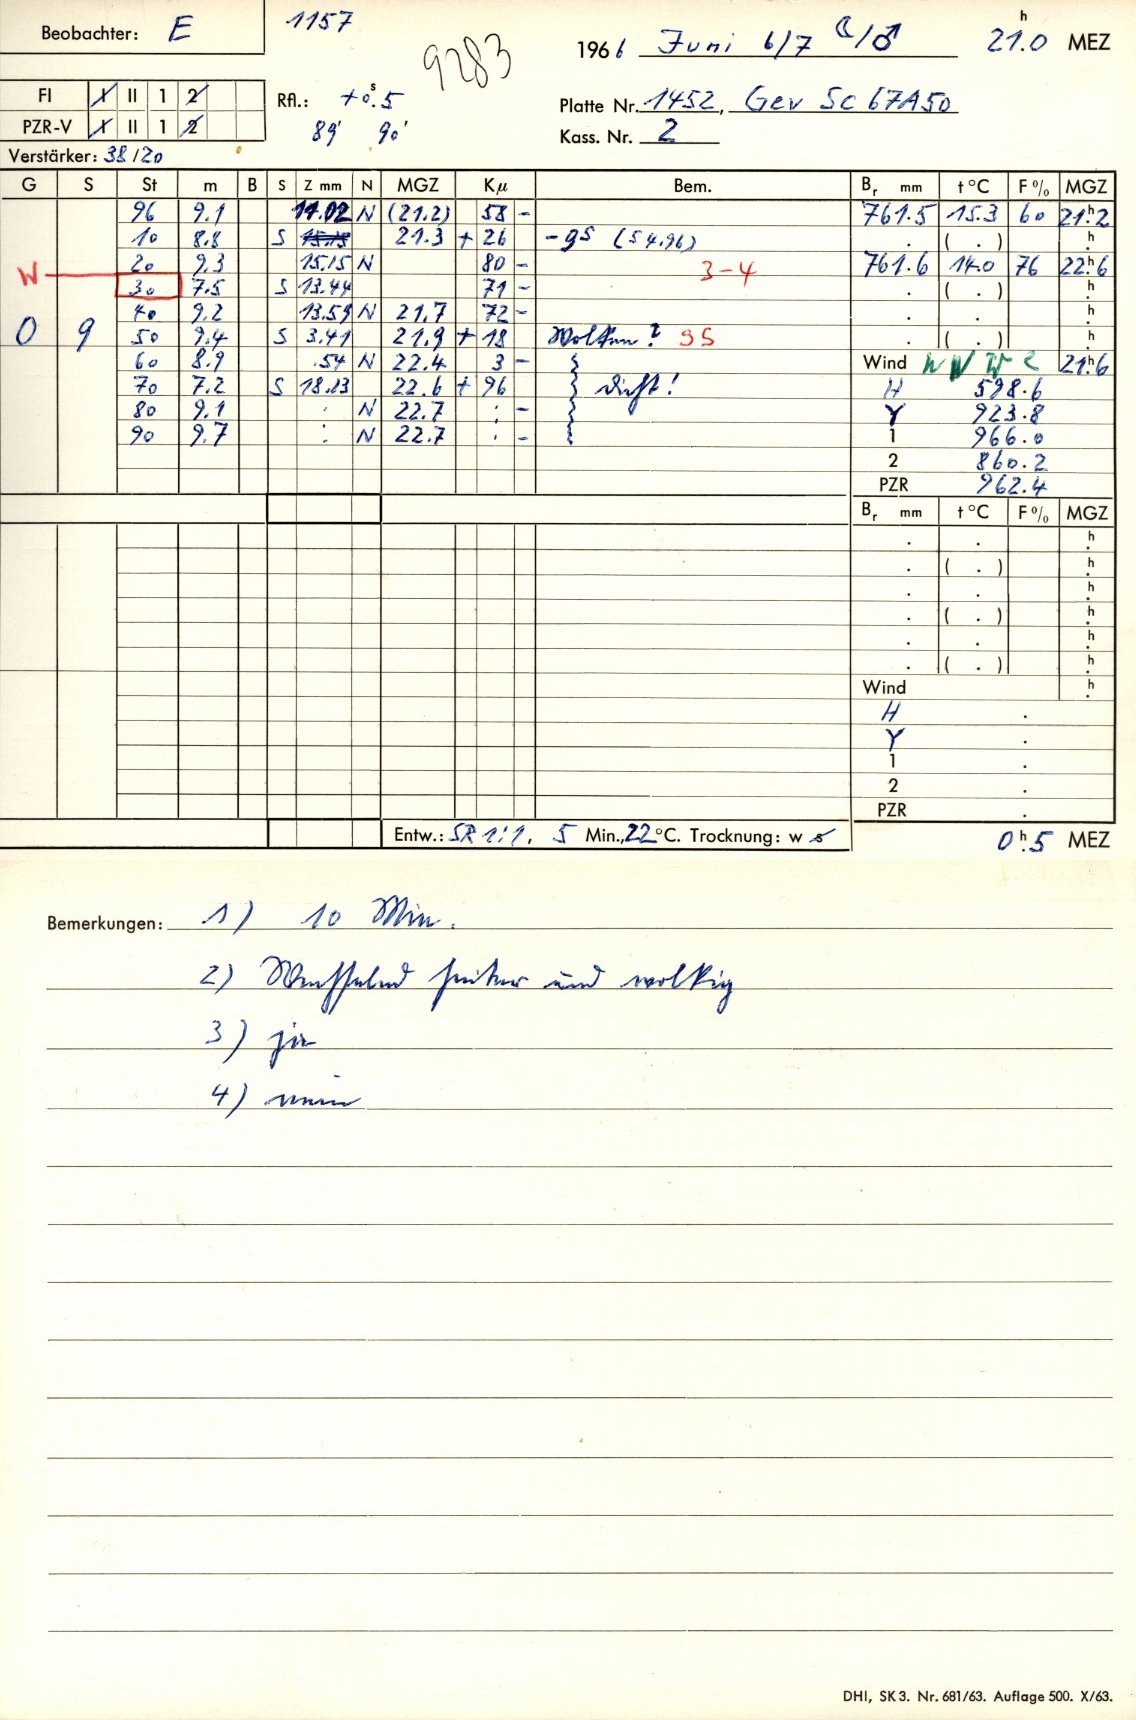 Beobachter: E
1157
9283
1966 Juni 6/7 ☾/♂ 21.0 h MEZ
FI I II 1 2
PZR-V I II 1 2
Rfl.: +0.s5
89' 90'
Platte Nr. 1452, Gev Sc 67A50
Kass. Nr. 2
Verstärker: 38/20
G S St m B S Z mm N MGZ Kµ Bem. Br mm t °C F % MGZ
96 9.1 N (21.2) 58 - 761.5 15.3 60 21h.2
10 8.8 S 15.15 21.3 + 26 -gs (St.96) . ( . ) h.
20 9.3 15.15 N 80 - 3-4 761.6 14.0 76 22h.6
W 30 7.5 S 13.44 71 - . ( . ) h.
40 9.2 13.59 N 21.7 72 - . . h.
0 9 50 9.4 S 3.41 21.9 + 18 Wolken? 95 . ( . ) h.
60 8.9 .54 N 22.4 3 - Wind W N W 2 21h.6
70 7.2 S 18.13 22.6 + 96 dicht! H 598.6
80 9.1 : N 22.7 : - Y 923.8
90 9.7 : N 22.7 : - 1 966.0
2 860.2
PZR 962.4
Br mm t °C F % MGZ
. . h.
. ( . ) h.
. . h.
. ( . ) h.
. . h.
. ( . ) h.
Wind h.
H .
Y .
1 .
2 .
PZR .
Entw.: SR 1:1, 5 Min., 22 °C. Trocknung: w s
0h.5 MEZ
Bemerkungen: 1) 10 Min.
2) Wechselnd heiter und wolkig
3) ja
4) nein
DHI, SK 3. Nr. 681/63. Auflage 500. X/63.